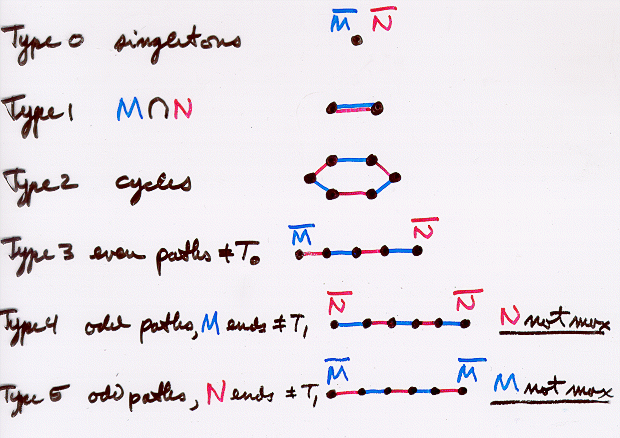 Type 0 singletons M̅ N̅
Type 1 M∩N
Type 2 cycles
Type 3 even paths ≠T₀ M̅ N̅
Type 4 odd paths, M ends ≠T₁ N̅ N̅ N not max
Type 5 odd paths, N ends ≠T₁ M̅ M̅ M not max